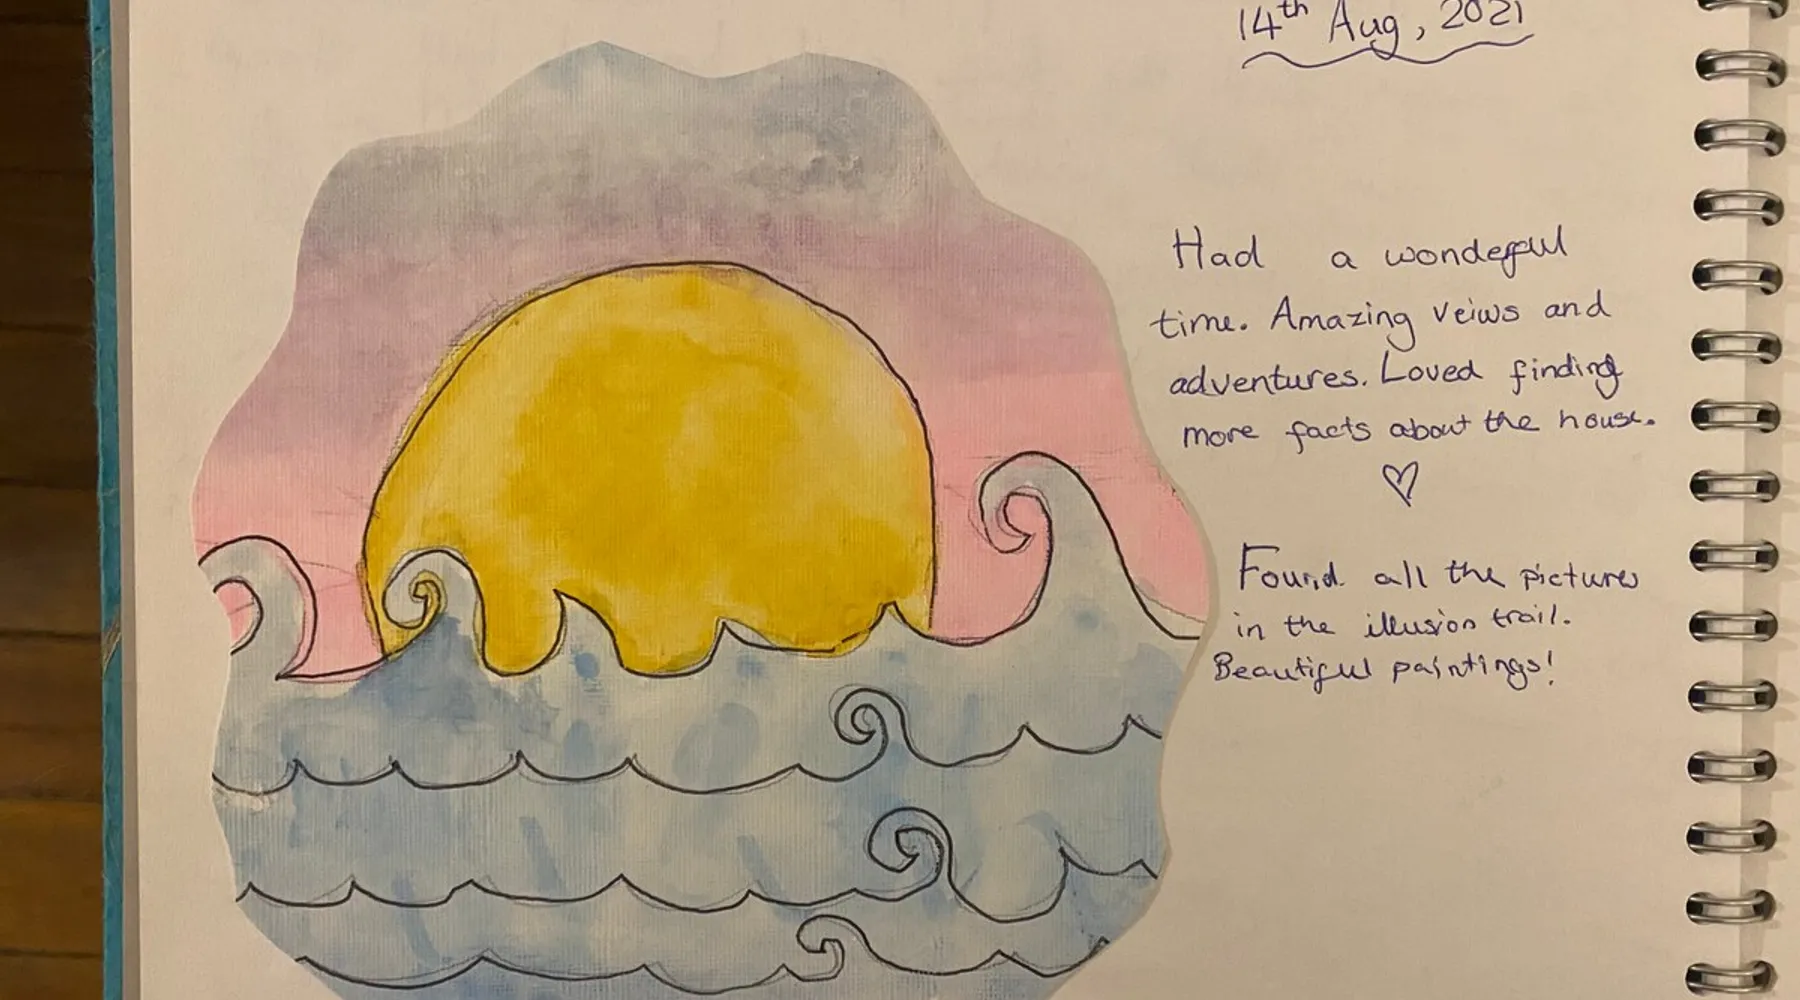 14th Aug, 2021
Had a wondeful
time. Amazing veiws and
adventures. Loved finding
more facts about the house.
Found all the pictures
in the illusion trail.
Beautiful paintings!